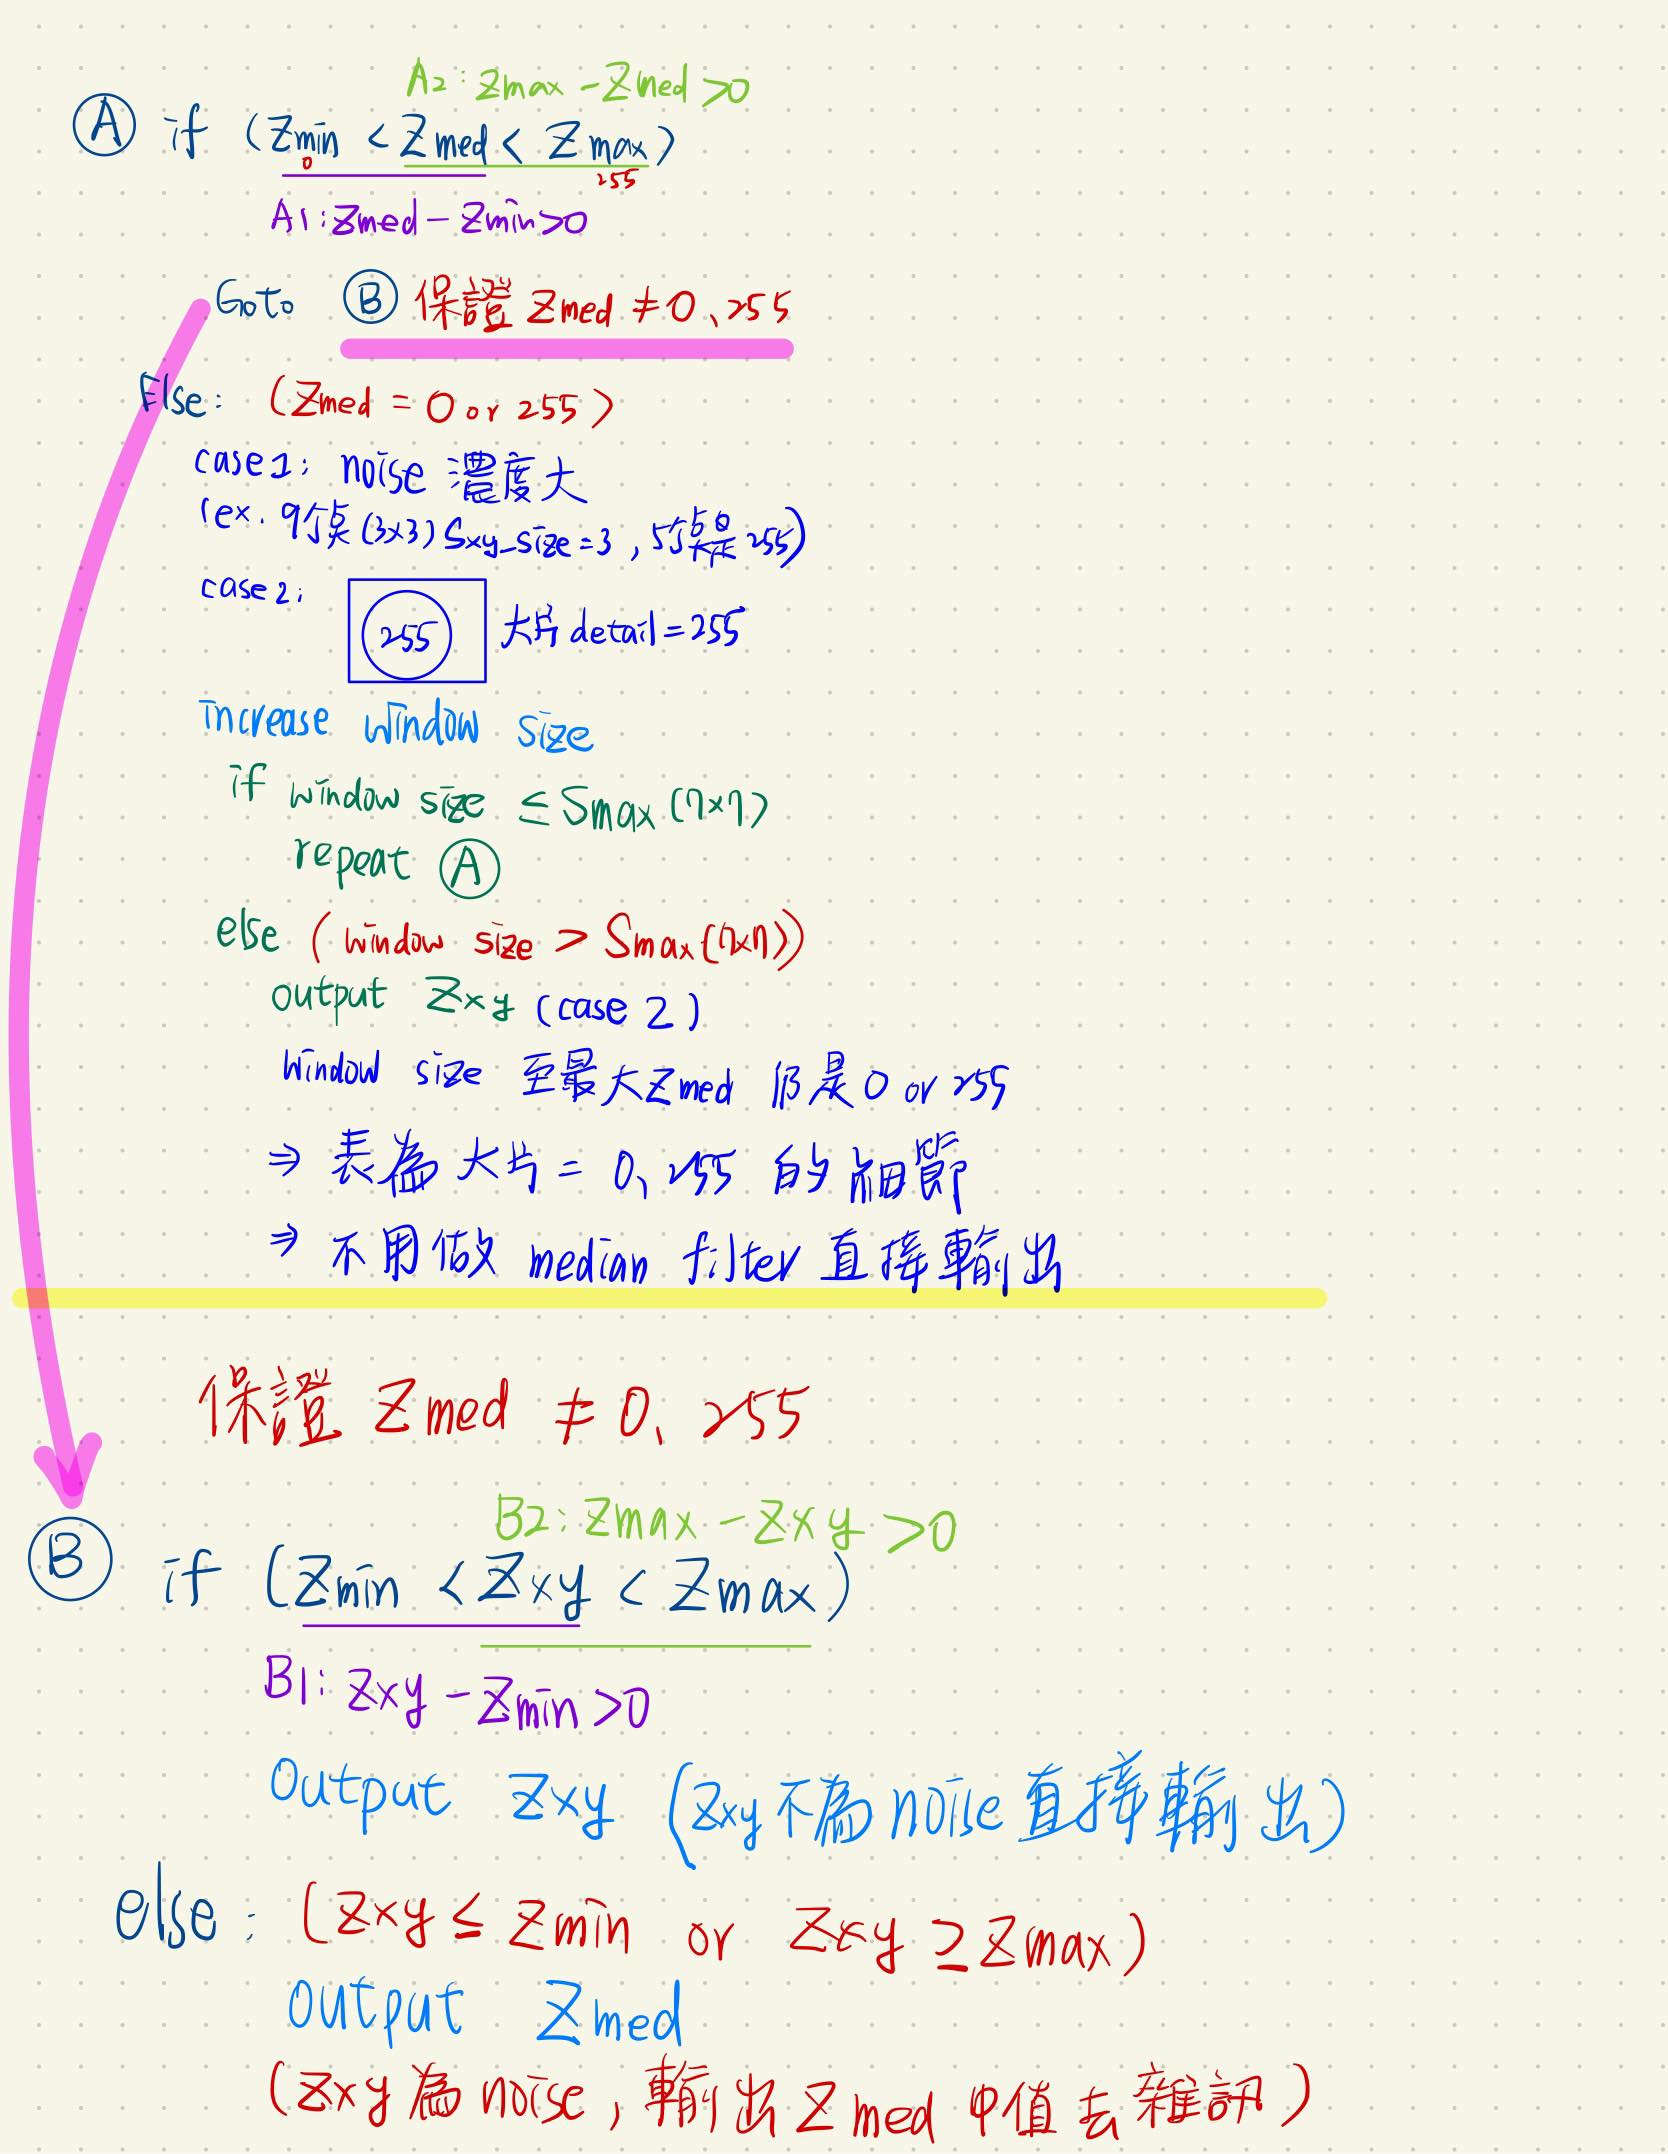 A2: Zmax - Zmed > 0
Ⓐ if (Zmin < Zmed < Zmax)
0 255
A1: Zmed - Zmin > 0
Goto Ⓑ 保證 Zmed ≠ 0、255
Else: (Zmed = 0 or 255)
case1: noise 濃度大
(ex. 9個點 (3x3) Sxy_size = 3, 5個點是 255)
case2: 255 大片 detail = 255
increase window size
if window size ≤ Smax (7x7)
repeat Ⓐ
else (window size > Smax (7x7))
output Zxy (case 2)
window size 至最大 Zmed 仍是 0 or 255
⇒ 表為大片 = 0、255 的細節
⇒ 不用做 median filter 直接輸出
保證 Zmed ≠ 0、255
B2: Zmax - Zxy > 0
Ⓑ if (Zmin < Zxy < Zmax)
B1: Zxy - Zmin > 0
Output Zxy (Zxy 不為 noise 直接輸出)
else: (Zxy ≤ Zmin or Zxy ≥ Zmax)
output Zmed
(Zxy 為 noise, 輸出 Zmed 中值去雜訊)